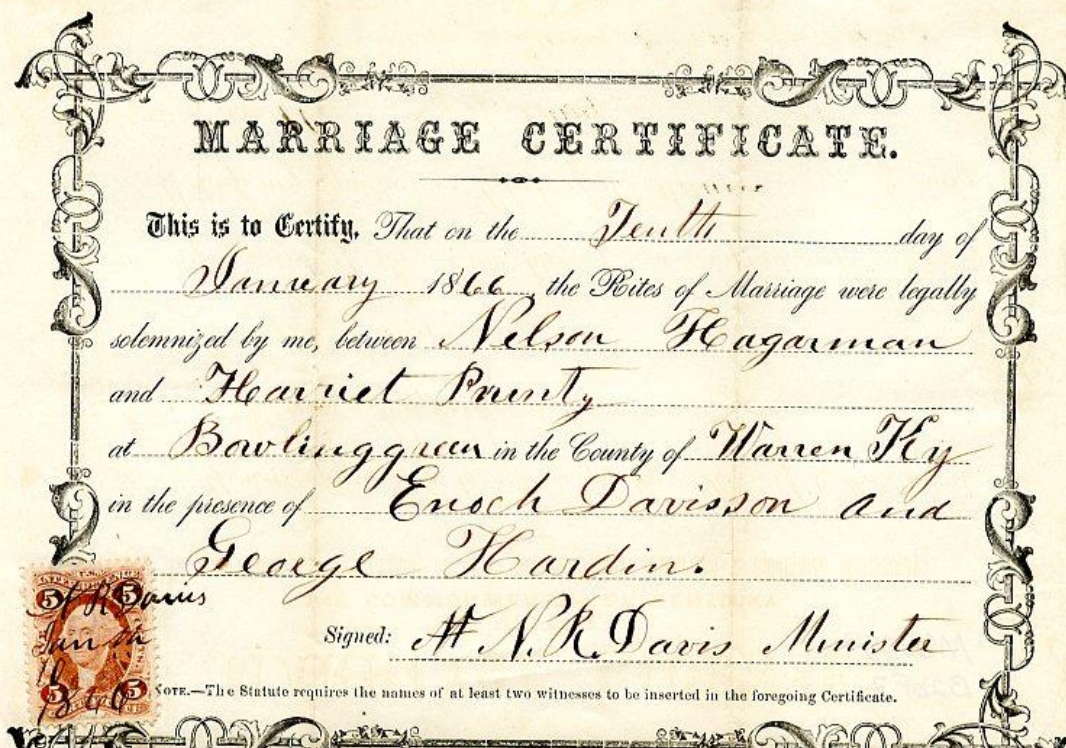 MARRIAGE CERTIFICATE.
This is to Certify, That on the Tenth day of
January 1866 the Rites of Marriage were legally
solemnized by me, between Nelson Hagarman
and Harriet Prunty
at Bowlinggreen in the County of Warren Ky
in the presence of Enoch Davisson and
George Hardin.
Signed: N. R. Davis Minister
NOTE.—The Statute requires the names of at least two witnesses to be inserted in the foregoing Certificate.
5 5
R Davis
Jan
10
1866
5 5